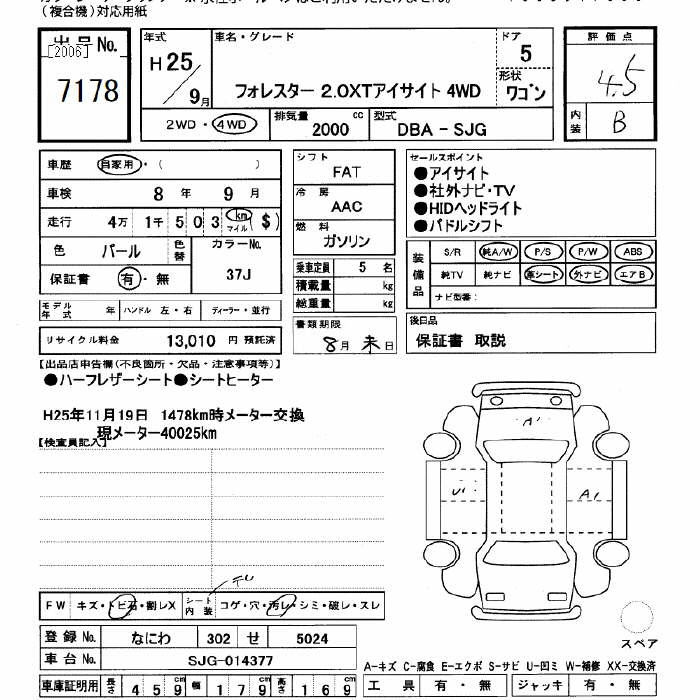 （複合機）対応用紙
出品No.
[2006]
7178
年式
H25/9月
車名・グレード
フォレスター 2.0XTアイサイト 4WD
ドア
5
形状
ワゴン
評価点
4.5
内装
B
2WD・4WD
排気量
2000 cc
型式
DBA - SJG
車歴 自家用・（ ）
車検 8 年 9 月
走行 4万 1千 5 0 3 km マイル ($)
色 パール 色替 カラーNo.
保証書 有・無 37J
モデル年式 年 ハンドル 左・右 ディーラー・並行
リサイクル料金 13,010 円 預託済
シフト
FAT
冷房
AAC
燃料
ガソリン
乗車定員 5 名
積載量 kg
総重量 kg
書類期限
8月末日
セールスポイント
●アイサイト
●社外ナビ・TV
●HIDヘッドライト
●パドルシフト
装備品 S/R 純A/W P/S P/W ABS
純TV 純ナビ 革シート 外ナビ エアB
ナビ型番：
後日品
保証書 取説
【出品店申告欄（不良箇所・欠品・注意事項等）】
●ハーフレザーシート●シートヒーター
H25年11月19日 1478km時メーター交換
現メーター40025km
【検査員記入】
A1
U1
A1
FW キズ・トビ石・割レX シート内装 コゲ・穴・汚レ・シミ・破レ・スレ
登録No. なにわ 302 せ 5024
車台No. SJG-014377
車庫証明用 長さ 4 5 9 cm 幅 1 7 9 cm 高さ 1 6 9 cm
スペア
A-キズ C-腐食 E-エクボ S-サビ U-凹ミ W-補修 XX-交換済
工具 有・無 ジャッキ 有・無